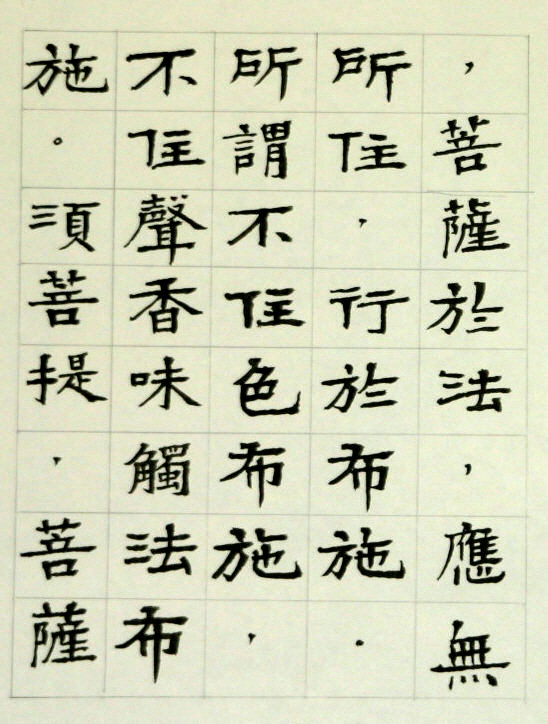 ，菩薩於法，應無
所住，行於布施．
所謂不住色布施，
不住聲香味觸法布
施。須菩提，菩薩